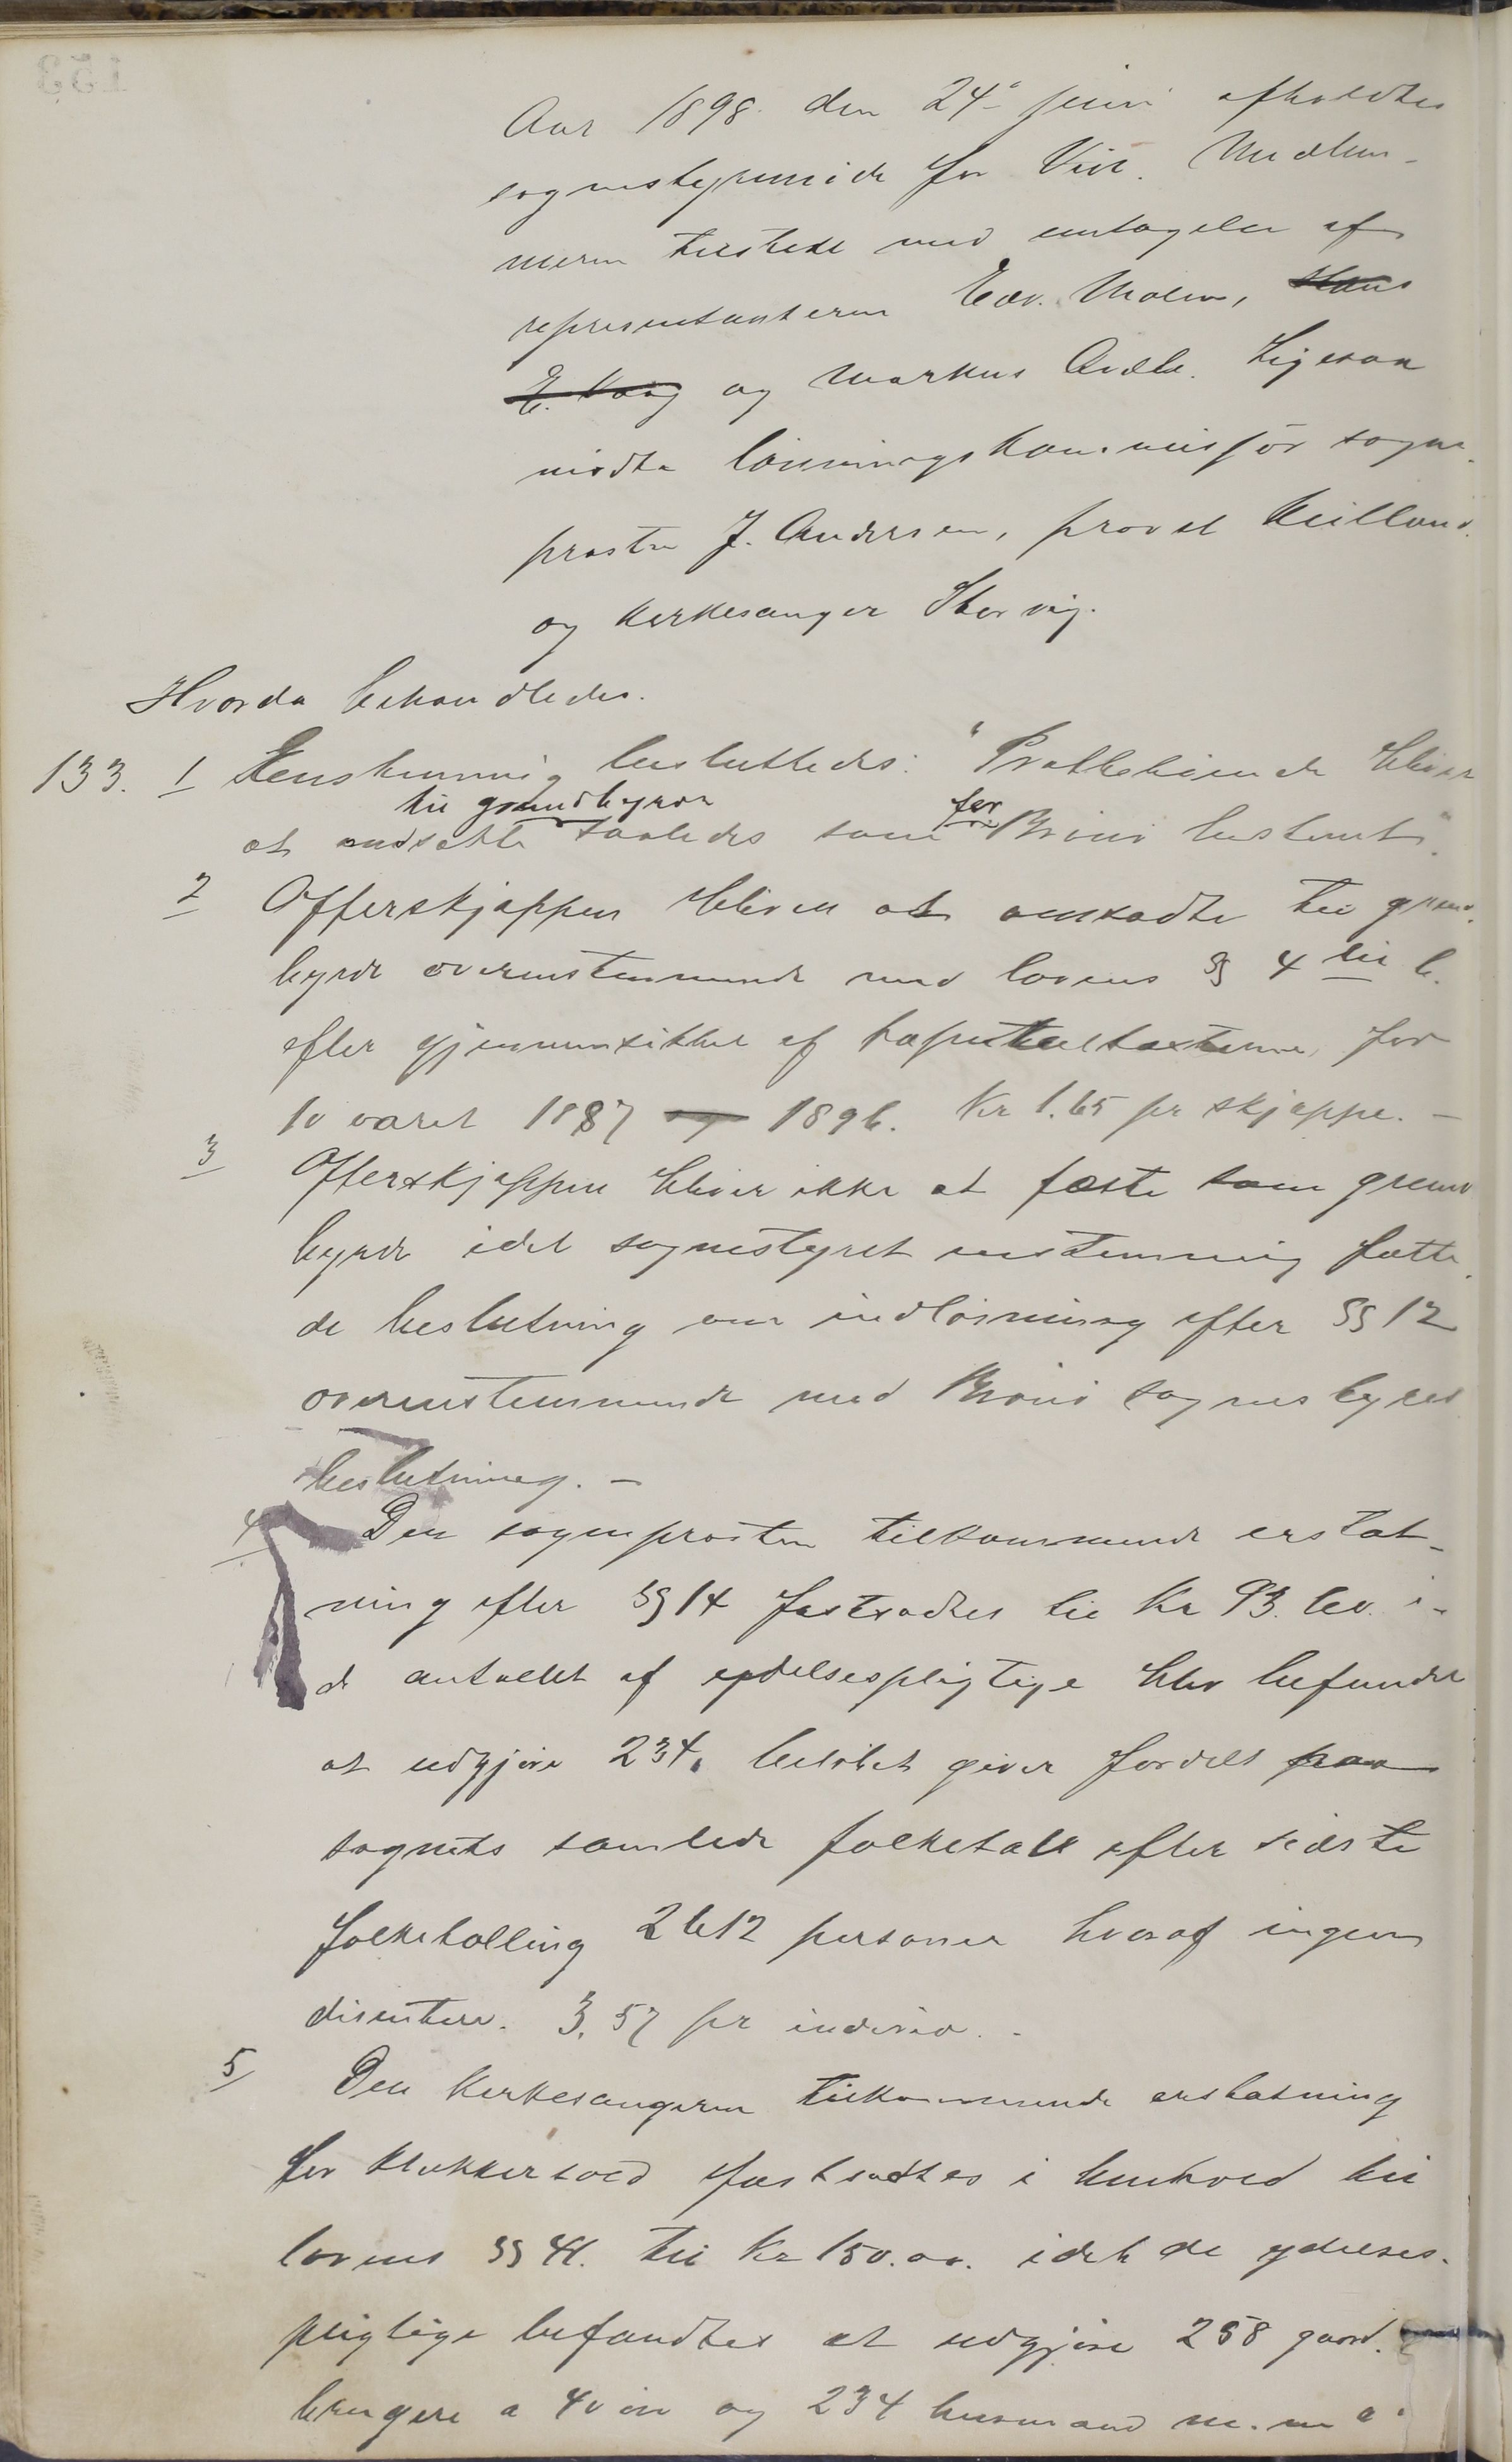 Aar 1898 den 24de juni afholdtes
sognestyremøde for Vivi. Medlem-
merne tilstede med untagelse af
representanterne Edv. Molin, Hans
E. Vaag og Markus Ardle. Ligesaa
mødte lønningskommissær sogne-
prosten J. Andersen, provst Keilland.
og kirkesanger Storvig.
Hvorda behandledes.
133. 1 Eenstemmig besluttedes: "Prættehøiende bliver
til grundbyrde for
at ansætte saaledes som Brønø bestemt".
2 Offerskjæppen bliver at omsætte til grund-
byrde overenstemmende med lovens § 4 lit b.
efter gjennemsnittet af kapitelstaxterne for
10 aaret 1887 og 1896. Kr 1.65 pr skjæppe. -
3 Offerskjæppen bliver ikke at fæste som grund
byrde idet sognestyret enstemmig fatte-
de beslutning om indløsning efter § 12
overenstemmende med Brønø sognestyres
beslutning. -
4 Den sogneprosten tilkommende erstat-
ning efter § 14 fastsattes til Kr 93.60. i-
d antallet af ydelsespligtige blev befundet
at udgjøre 234. beløbet giver fordelt paa
sognets samlede folketall efter sidste
folketælling 2612 personer hvoraf ingen
disentere. 3,57 pr individ. -
5 Den kirkesangeren tilkommende erstatning
for klokkertold fastsattes i henhold til
lovens § 41. til Kr 150.00. idet de ydelses-
pligtige befandtes at udgjøre 258 gaard-
brugere a 40 øre og 234 husmænd m. m a